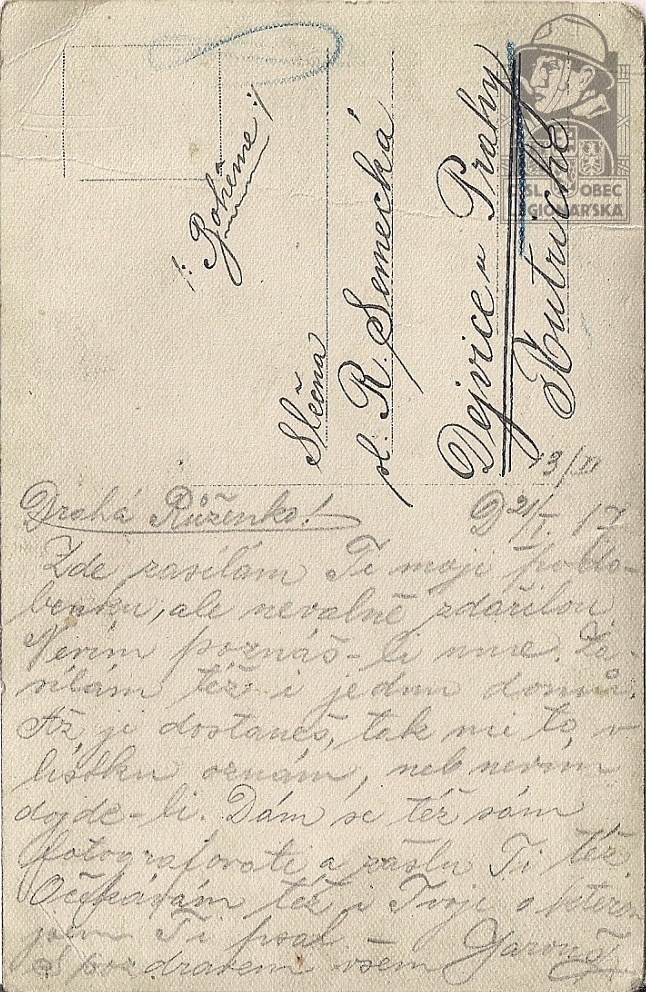 /: Bohème :/
Slečna
sl. R. Semecká
Dejvice u Prahy
ČSL. OBEC
LEGIONÁŘSKÁ
13/II
Drahá Růženko!
D 21/I. 17
Zde zasílám Ti moji podo-
benku, ale nevalně zdařilou.
Nevím poznáš-li mne. Za-
sílám též i jednu domů.
Až ji dostaneš, tak mi to v
lístku oznám, neb nevím
dojde-li. Dám se též sám
fotografovati a zašlu Ti též.
Očekávám též i Tvoji o kterou
jsem Ti psal.
S pozdravem všem